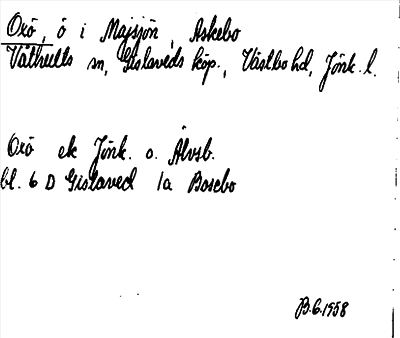 Oxö, ö i Majsjön, Askebo
Våthults sn, Gislaveds köp., Västbo hd, Jönk. l.
Oxö ek Jönk. o. Älvsb.
bl. 6 D Gislaved 1a Bosebo
B.G. 1958